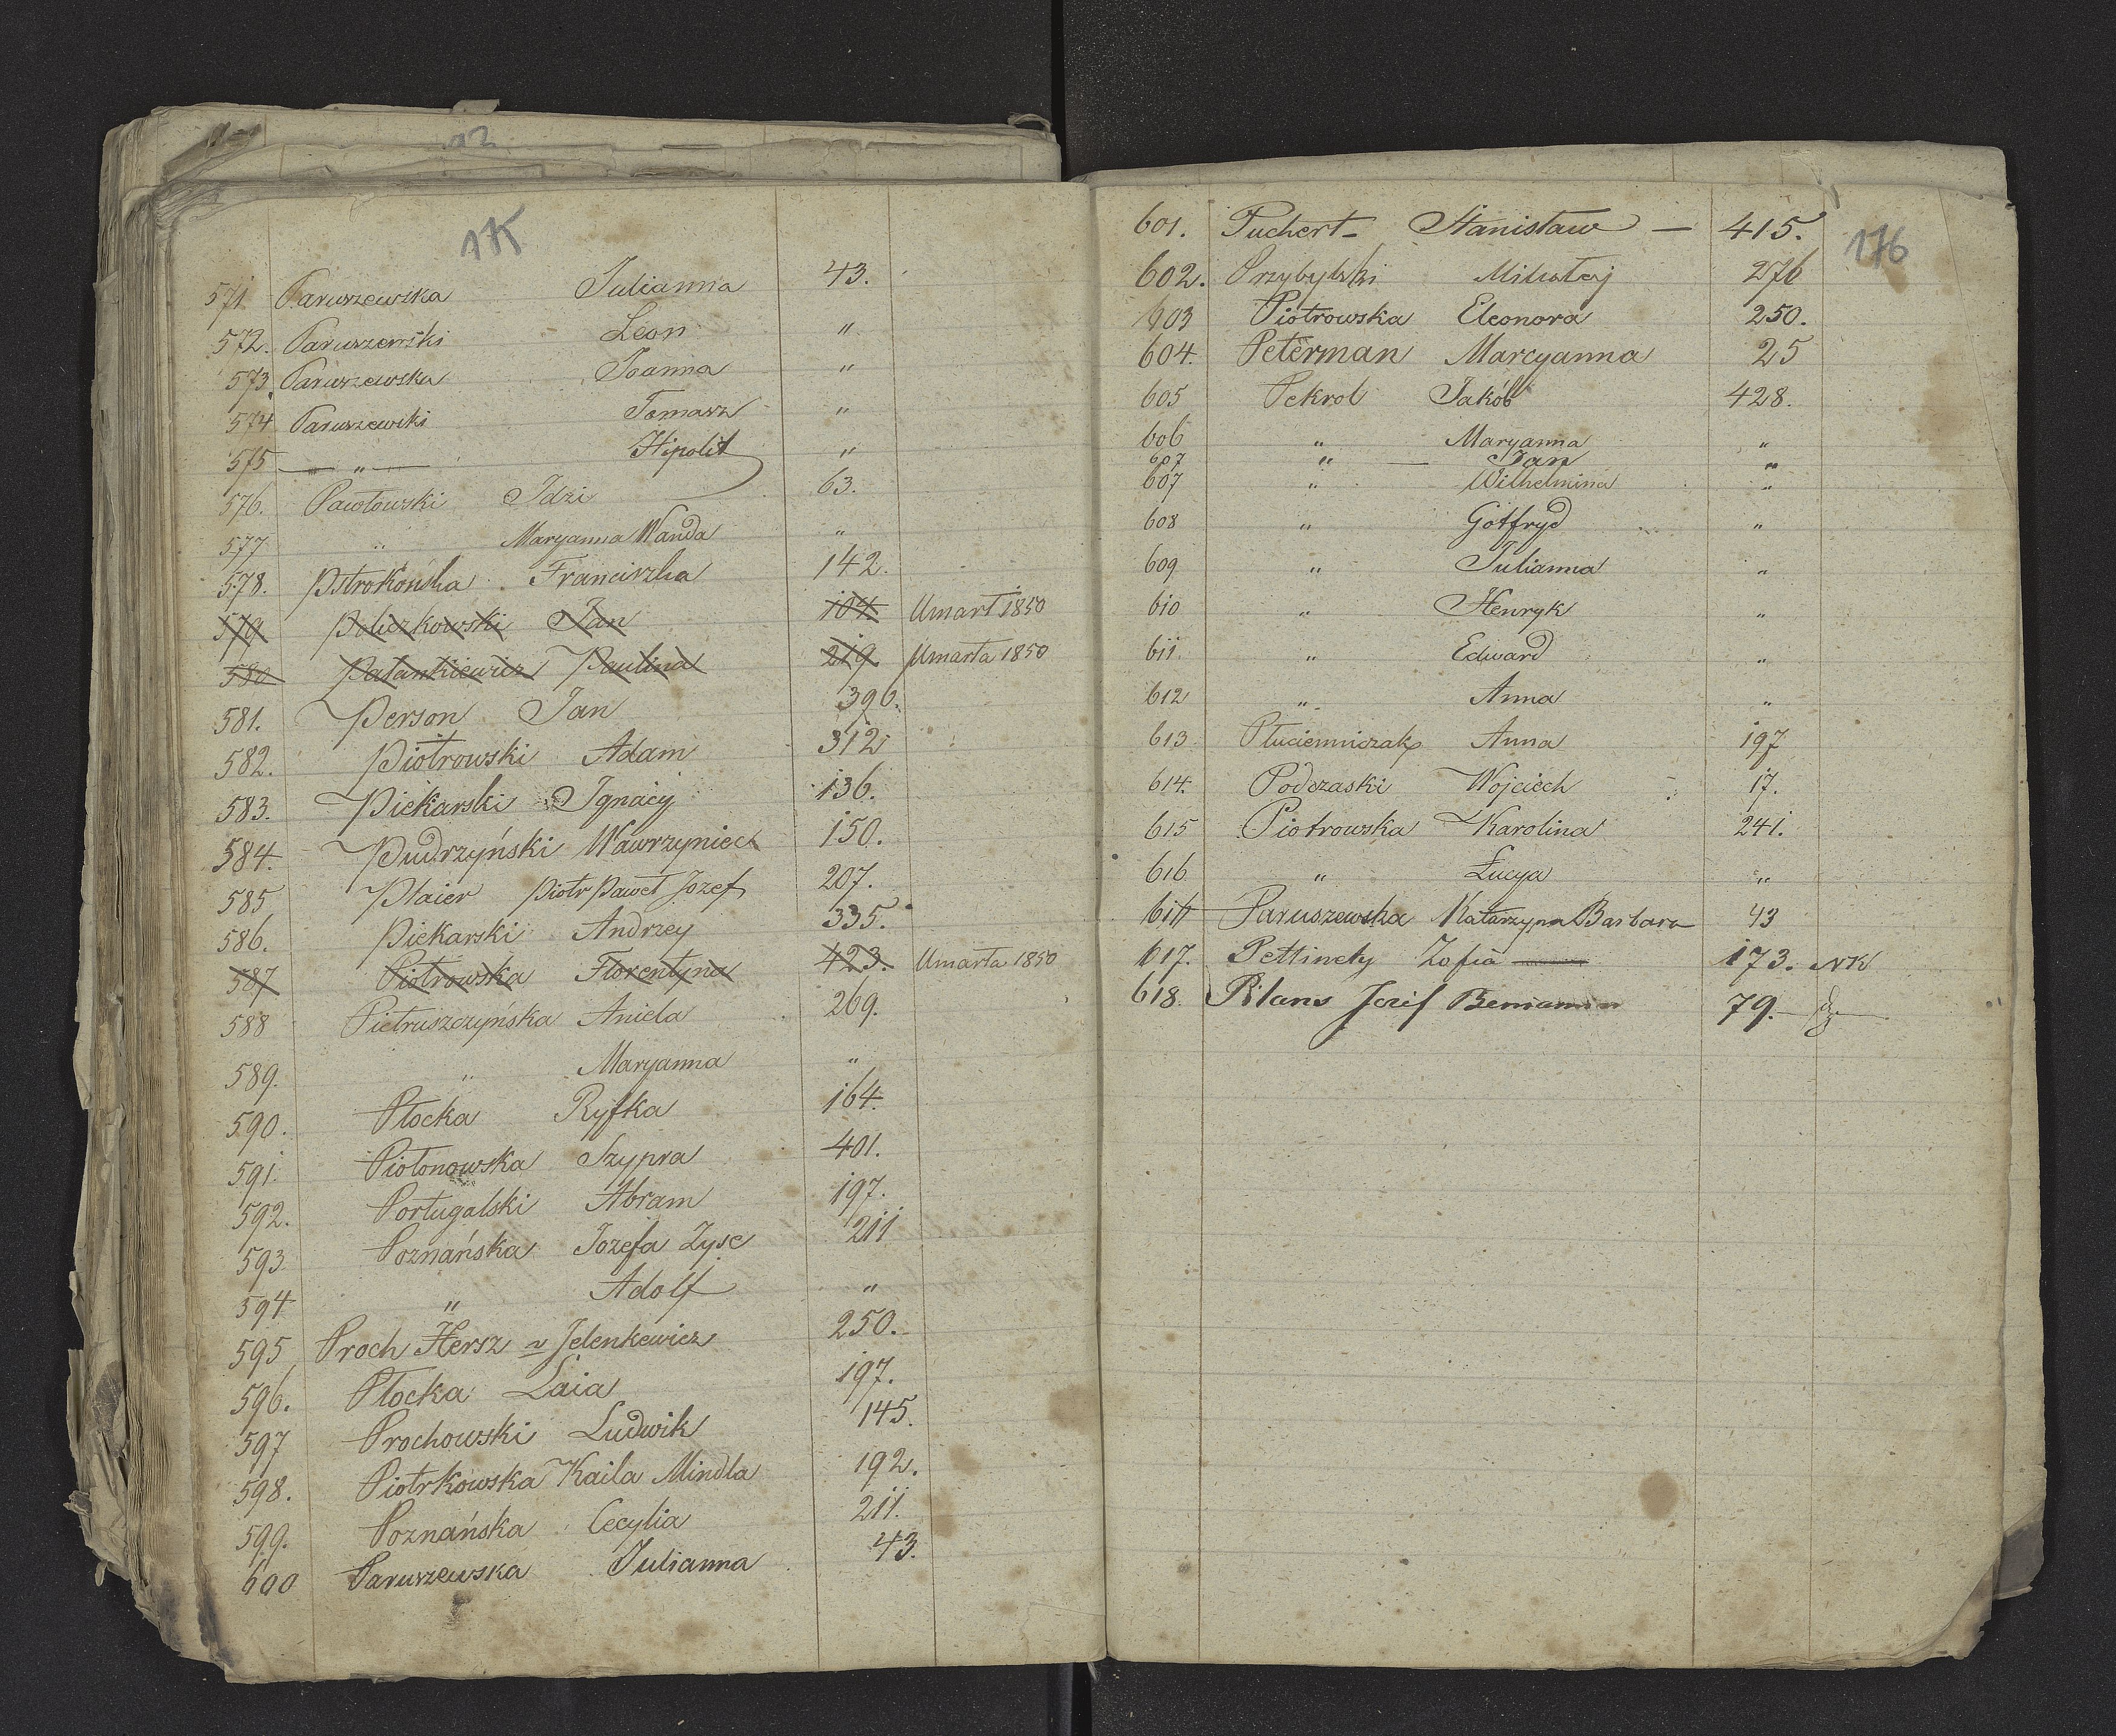 175
571. Paruszewska Julianna 43.
572. Paruszewski Leon "
573. Paruszewska Joanna "
574 Paruszewski Tomasz "
575 — " — Hipolit "
576. Pawłowski Idzi 63.
577 " Maryanna Wanda "
578. Pstrokońska Franciszka 142.
579 Policzkowski Jan 104. Umarł 1850
580 Pałankiewicz Paulina 219. Umarła 1850
581. Person Jan 390.
582. Piotrowski Adam 312
583. Piekarski Ignacy 136.
584. Pudrzyński Wawrzyniec 150.
585 Plaier Piotr Paweł Jozef 207.
586. Piekarski Andrzey 335.
587 Piotrowska Florentyna 423. Umarła 1850
588 Pietruszczyńska Aniela 269.
589. " Maryanna "
590. Płocka Ryfka 164.
591. Piotonowska Szypra 401.
592. Portugalski Abram 197.
593 Poznańska Jozefa Zyse 211
594 " Adolf "
595 Proch Hersz v Jelenkewicz 250.
596. Płocka Laia 197.
597 Prochowski Ludwik 145.
598. Piotrkowska Kaila Mindla 192.
599. Poznańska Cecylia 211.
600 Paruszewska Julianna 43.
176
601. Puchert Stanisław — 415.
602. Przybylski Mikołaj 276
603 Piotrowska Eleonora 250.
604. Peterman Marcyanna 25
605 Pekrol Jakób 428.
606 " Maryanna "
607 " — Jan "
607 " Wilhelmina "
608 " Gotfryd "
609 " Julianna "
610 " Henryk "
611. " Edward "
612 " Anna "
613 Płucienniczak Anna 197
614. Podczaski Wojciech 17.
615 Piotrowska Karolina 241.
616 " Łucya "
616 Paruszewska Katarzyna Barbara 43
617. Pettinety Zofia — 173. NK
618. Pilans Jozef Beniamin 79. —